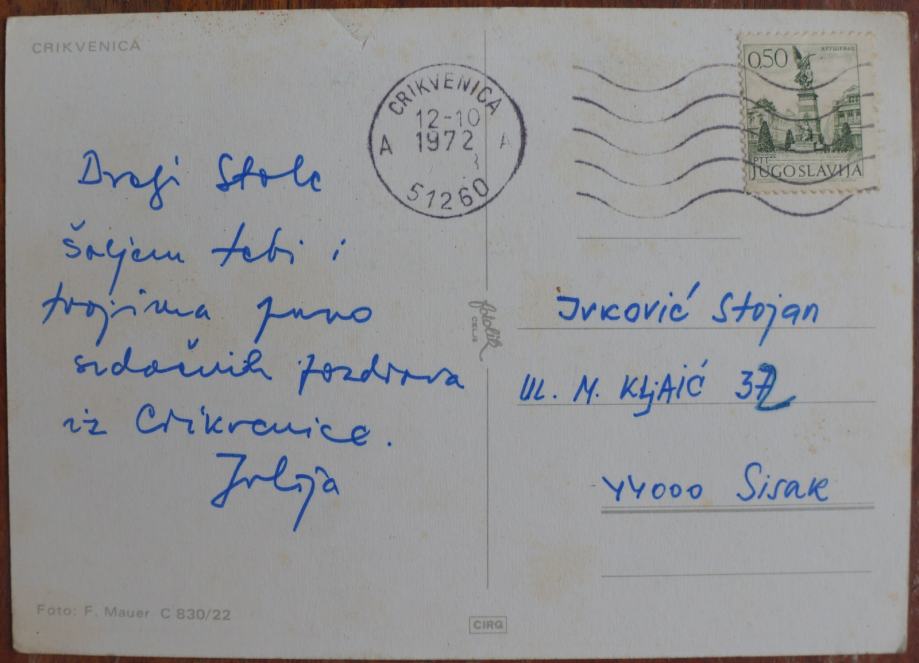 CRIKVENICA
CRIKVENICA
12-10
1972
A A
51260
0,50
PTT
JUGOSLAVIJA
Dragi Stole
Šaljem tebi i
tvojima puno
srdačnih pozdrava
iz Crikvenice.
Julija
fotolik
CELJE
Ivković Stojan
UL. M. KLJAIĆ
44000 Sisak
Foto: F. Mauer C 830/22
CIRO